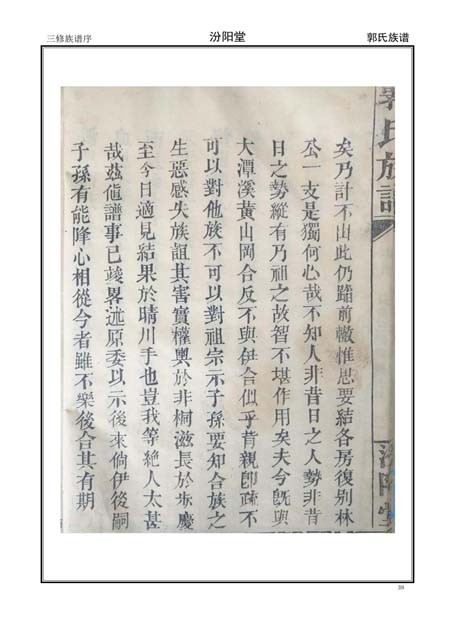 三修族谱序
汾阳堂
郭氏族谱
氏族譜
矣乃計不出此仍蹈前轍惟思要結各房復别林
公一支是獨何心哉不知人非昔日之人勢非昔
日之勢縱有乃祖之故智不堪作用矣夫今既與
大潭溪黄山岡合反不與伊合似乎背親即疏不
可以對他族不可以對祖宗示子孫要知合族之
生惡感失族誼其害實權輿於非桐滋長於步慶
至今日適見結果於晴川手也豈我等絶人太甚
哉兹值譜事已竣畧述原委以示後來倘伊後嗣
子孫有能降心相從今者雖不樂後合其有期
汾陽堂
39